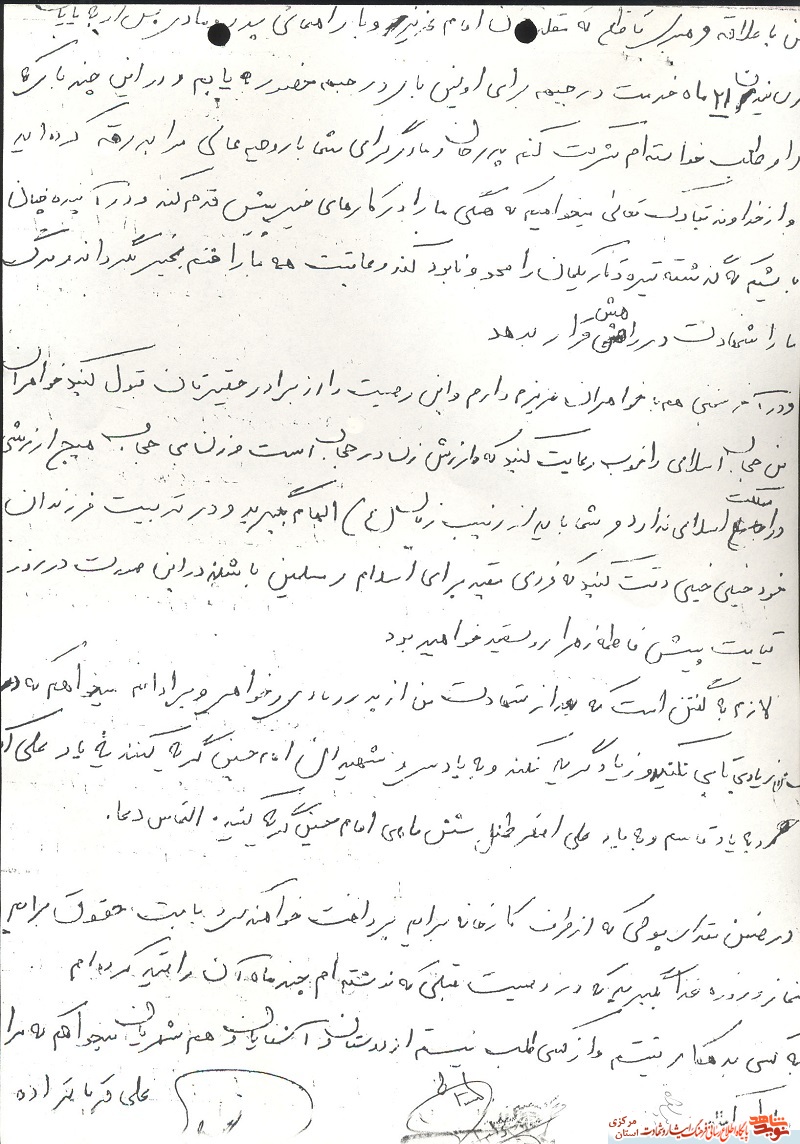 من با علاقه و میل قاطع که مقلد امام عزیز و با راهنمائی پدر و مادری بس ارجمند
رسانیدن ۲۱ ماه خدمت در جبهه برای اولین بار در جبهه حضور یابم و در این چند باری که
داوطلب خواسته‌ام شرکت کنم پدرجان و مادر گرامی شما با روحیه عالی مرا بدرقه کرده‌اید
و از خداوند تبارک تعالی میخواهیم که همگی ما را در کارهای خیر پیش قدم کند و در آینده چنان
باشیم که گذشته تیره و تاریکمان را محو و نابود کند و عاقبت همه ما را ختم بخیر بگرداند و مرگ
ما را شهادت در راهش قرار بدهد
و در آخر سخنی هم با خواهران عزیزم دارم و این وصیت را از برادر حقیرتان قبول کنید خواهران
من حجاب اسلامی را خوب رعایت کنید که ارزش زن در حجاب است و زن بی حجاب هیچ ارزشی
در مملکت اسلامی ندارد و شما باید از زینب زمان (ع) الهام بگیرید و در تربیت فرزندان
خود خیلی خیلی دقت کنید که فردی مفید برای اسلام و مسلمین باشند در این صورت در روز
قیامت پیش فاطمه زهرا رو سفید خواهید بود
لازم به گفتن است که بعد از شهادت من از پدر و مادر و خواهر و برادرانم میخواهم که در
زیاد بی‌تابی نکنید و زیاد گریه نکند و به یاد شهیدان امام حسین گریه کنند به یاد علی اکبر
و به یاد قاسم و به یاد علی اصغر طفل شش ماهه امام حسین گریه کنید. التماس دعا.
در ضمن مقدار پولی که از طرف کارخانه برایم پرداخت خواهند کرد بابت حقوق برایم
نماز و روزه بگیرید که در وصیت قبلی که نوشته‌ام چند ماه آن را قید کرده‌ام
به کسی بدهکار نیستم و از کسی طلب نیستم از دوستان و آشنایان و هم شهریان میخواهم که مرا
علی قربانزاده
نوید شاهد
پایگاه اطلاع رسانی فرهنگ ایثار و شهادت
استان مرکزی